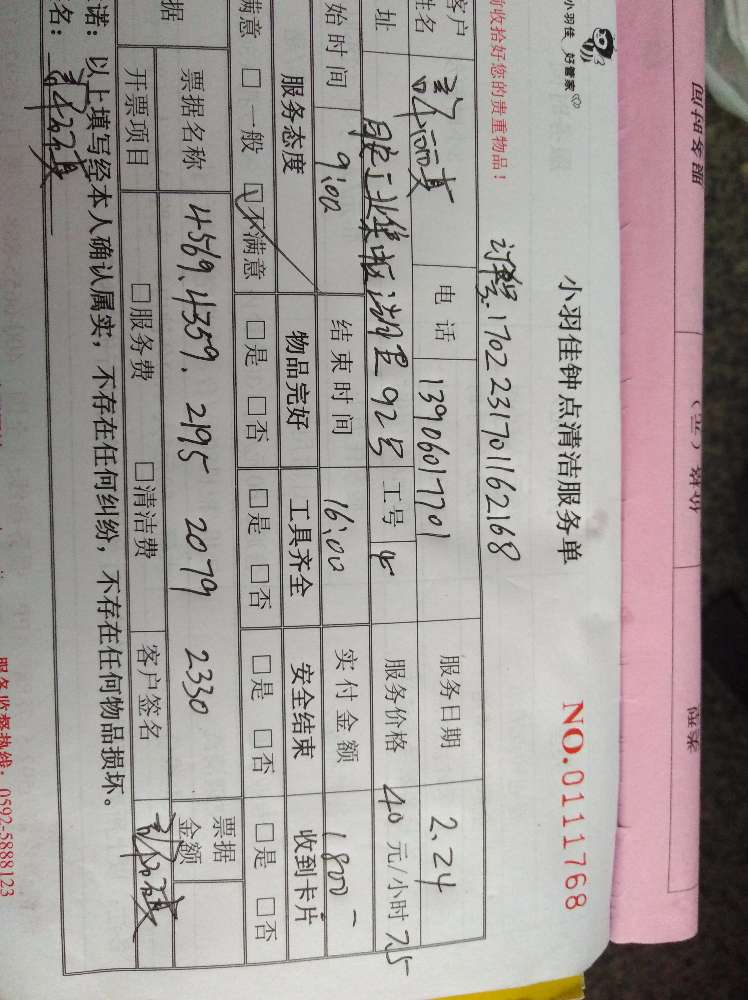 小羽佳 好管家
小羽佳钟点清洁服务单
NO.0111768
前收拾好您的贵重物品!
170223170116​2168
客户姓名 电话 13906017701 服务日期 2.24
址 92号 工号 服务价格 40 元/小时 7.5
始时间 9:00 结束时间 16:00 实付金额 1800-
服务态度 物品完好 工具齐全 安全结束 收到卡片
满意 □一般 □不满意 □是 □否 □是 □否 □是 □否 □是 □否
据 票据名称 4569.4359. 2195 2079 2330 票据金额
开票项目 □服务费 □清洁费 客户签名
诺:以上填写经本人确认属实,不存在任何纠纷,不存在任何物品损坏。
名:
服务监督热线:0592-5888123